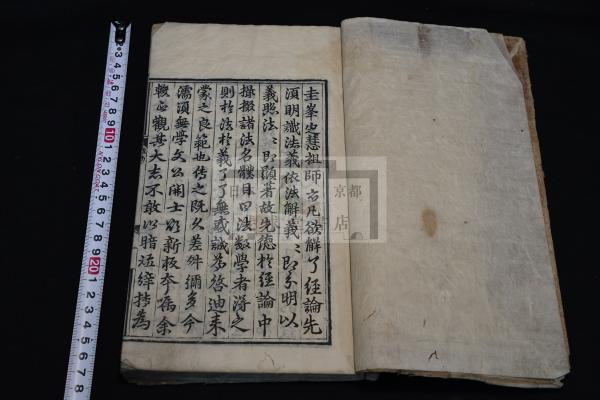 圭峯定慧祖師云凡欲解了經論先
須明識法義依法解義義即分明以
義照法法即顯著故先德於經論中
操掇諸法名體目曰法數學者得之
則於法於義了了無惑誠為啓迪来
蒙之良範也傳之既久差舛彌多今
濡須無學文公開士欲新板本属余
較正觀其大志不敢以暗短辭持為